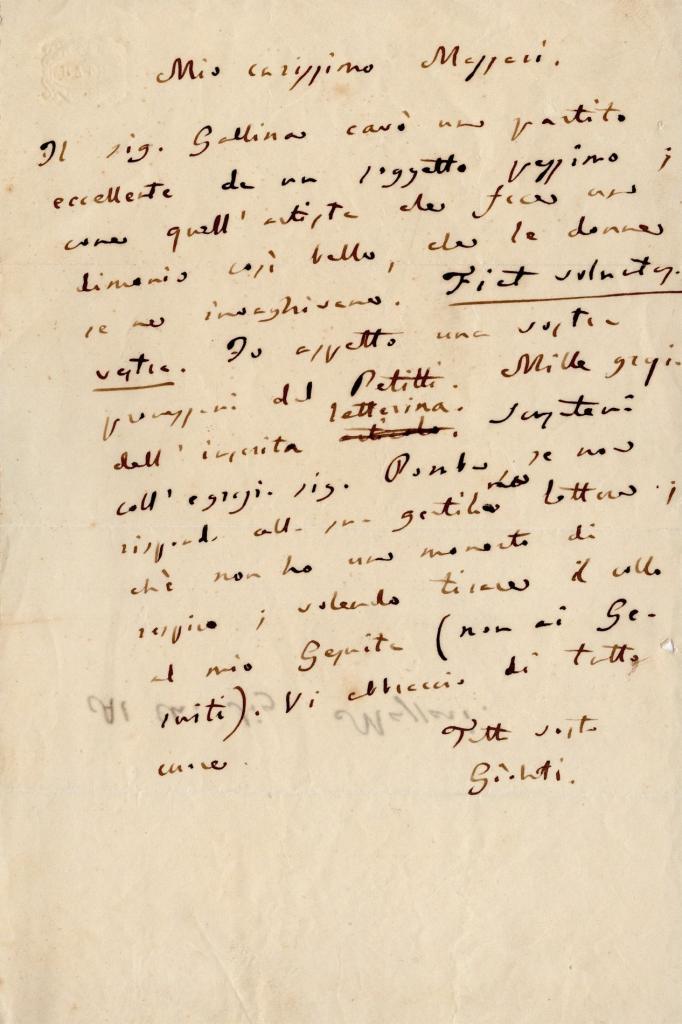 Mio carissimo Massari.
Il sig. Gallina cavò un partito
eccellente da un soggetto pessimo;
come quell' artista che fece un
dimonio così bello, che le donne
se ne invaghivano. Fiat voluntas
vestra. Io aspetto una vostra
del Petitti. Mille grazi.
dell' inserita letterina. Scusatemi
coll' egregio sig. Pomba, se non
rispondo alla sua gentile lettera;
chè non ho un momento di
respiro; volendo tirare il collo
al mio Gesuita (non ai Ge-
suiti). Vi abbraccio di tutto
cuore.
Tutt vostro
Gioberti.
Al Massari.